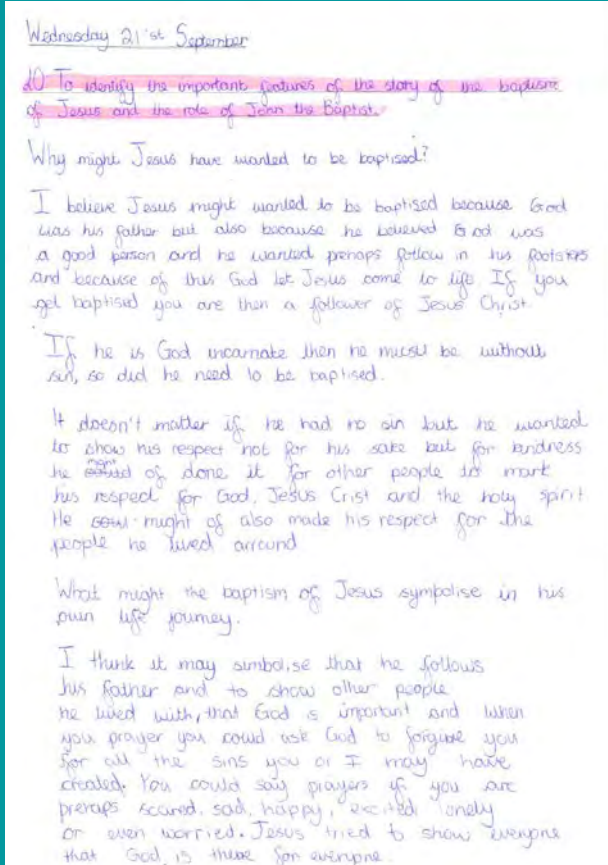 Wednesday 21'st September
LO To identify the important features of the story of the baptism
of Jesus and the role of John the Baptist.
Why might Jesus have wanted to be baptised?
I believe Jesus might wanted to be baptised because God
was his father but also because he believed God was
a good person and he wanted prehaps follow in his footsteps
and because of this God let Jesus come to life. If you
get baptised you are then a follower of Jesus Christ
If he is God incarnate then he must be without
sin, so did he need to be baptised.
It doesn't matter if he had no sin but he wanted
to show his respect not for his sake but for kindness
he might of done it for other people to mark
his respect for God, Jesus Crist and the holy spirit
He might of also made his respect for the
people he lived arround
What might the baptism of Jesus sympolise in his
own life journey.
I think it may simbolise that he follows
his father and to show other people
he lived with, that God is important and when
you prayer you could ask God to forgive you
for all the sins you or I may have
created. You could say prayers if you are
prehaps scared, sad, happy, excited lonely
or even worried. Jesus tried to show everyone
that God is there for everyone.